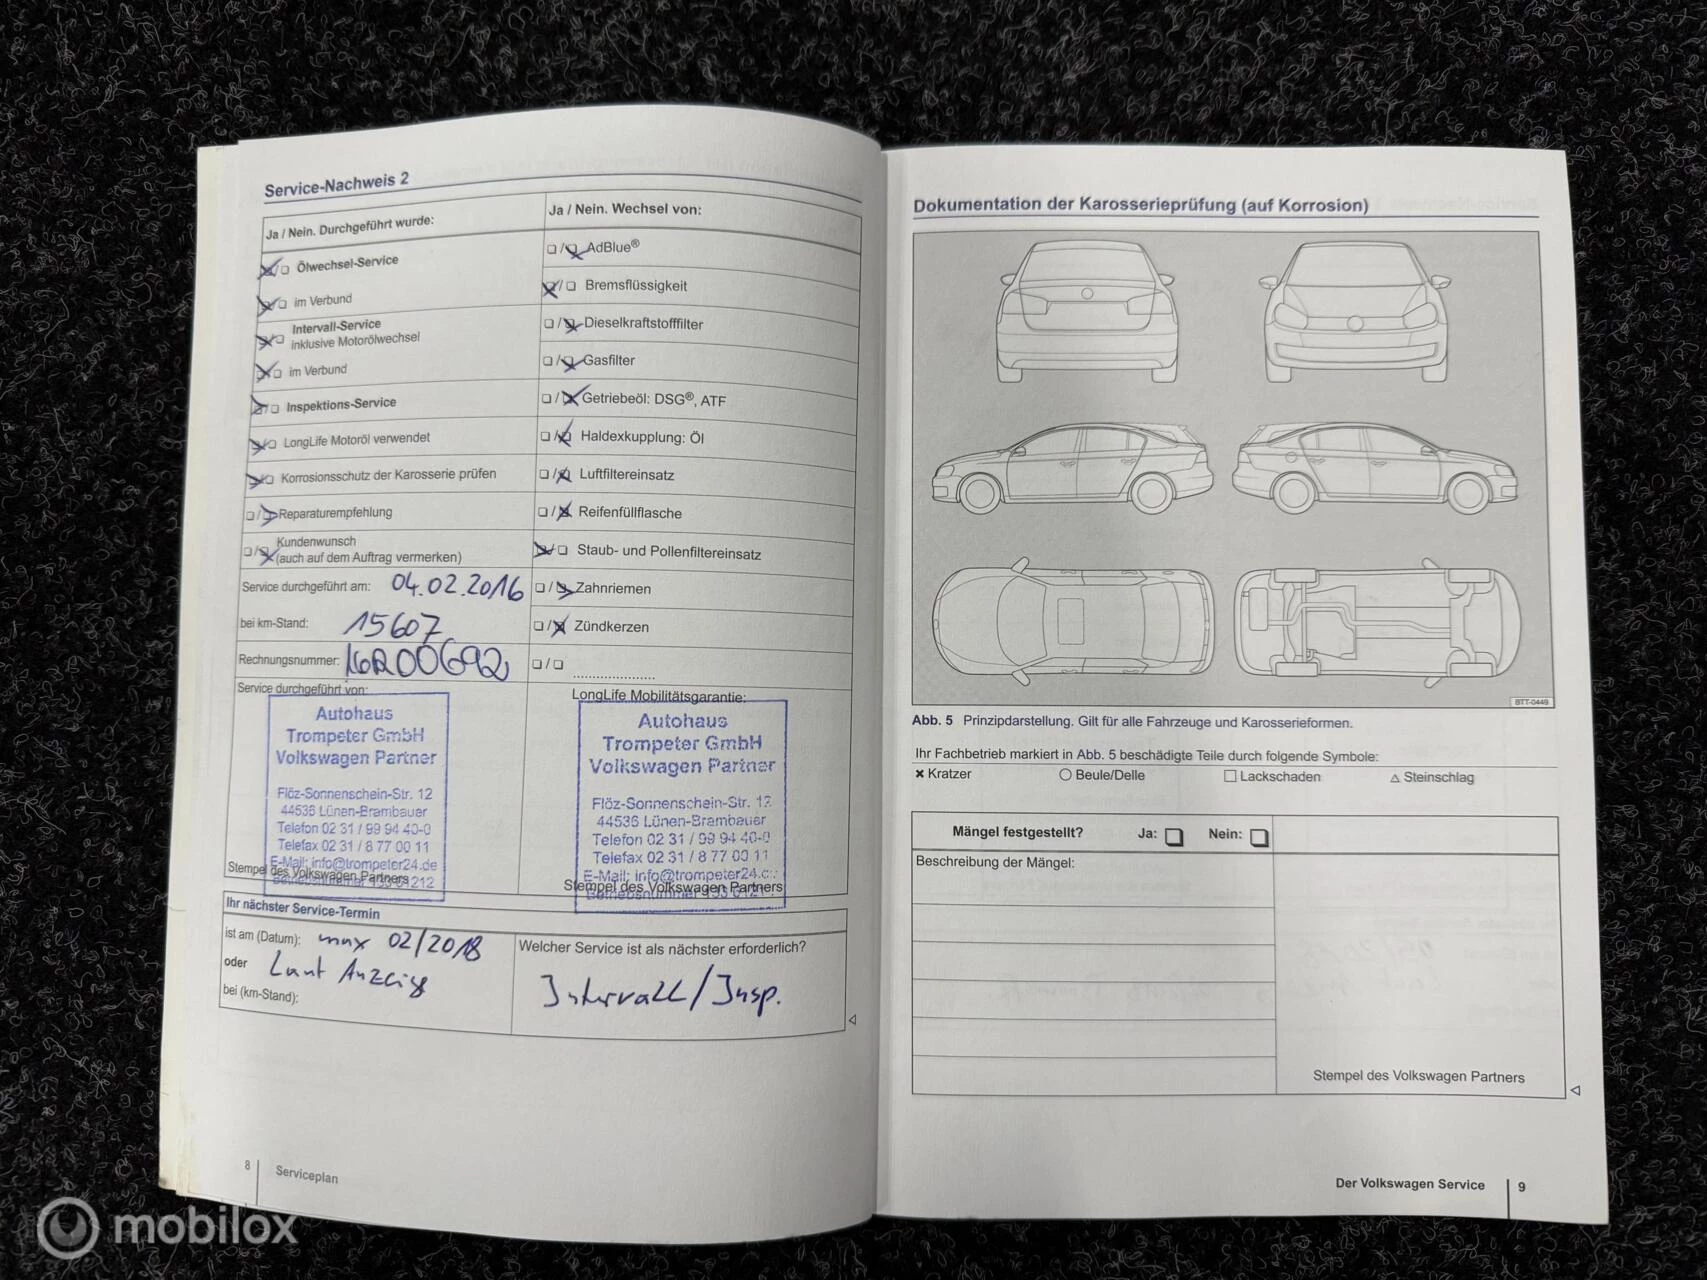 Service-Nachweis 2
Ja / Nein. Durchgeführt wurde:
Ölwechsel-Service
im Verbund
Intervall-Service
inklusive Motorölwechsel
im Verbund
Inspektions-Service
LongLife Motoröl verwendet
Korrosionsschutz der Karosserie prüfen
Reparaturempfehlung
Kundenwunsch
(auch auf dem Auftrag vermerken)
Service durchgeführt am: 04.02.2016
bei km-Stand: 15607
Rechnungsnummer: 16R00692
Ja / Nein. Wechsel von:
AdBlue®
Bremsflüssigkeit
Dieselkraftstofffilter
Gasfilter
Getriebeöl: DSG®, ATF
Haldexkupplung: Öl
Luftfiltereinsatz
Reifenfüllflasche
Staub- und Pollenfiltereinsatz
Zahnriemen
Zündkerzen
Service durchgeführt von:
Autohaus
Trompeter GmbH
Volkswagen Partner
Flöz-Sonnenschein-Str. 12
44536 Lünen-Brambauer
Telefon 02 31 / 99 94 40-0
Telefax 02 31 / 8 77 00 11
E-Mail: info@trompeter24.de
Stempel des Volkswagen Partners
LongLife Mobilitätsgarantie:
Autohaus
Trompeter GmbH
Volkswagen Partner
Flöz-Sonnenschein-Str. 12
44536 Lünen-Brambauer
Telefon 02 31 / 99 94 40-0
Telefax 02 31 / 8 77 00 11
E-Mail: info@trompeter24.
Stempel des Volkswagen Partners
Ihr nächster Service-Termin
ist am (Datum): max 02/2018
oder Laut Anzeige
bei (km-Stand):
Welcher Service ist als nächster erforderlich?
Intervall/Insp.
8 Serviceplan
Dokumentation der Karosserieprüfung (auf Korrosion)
BTT-0449
Abb. 5 Prinzipdarstellung. Gilt für alle Fahrzeuge und Karosserieformen.
Ihr Fachbetrieb markiert in Abb. 5 beschädigte Teile durch folgende Symbole:
× Kratzer ○ Beule/Delle □ Lackschaden △ Steinschlag
Mängel festgestellt? Ja: Nein:
Beschreibung der Mängel:
Stempel des Volkswagen Partners
Der Volkswagen Service 9
mobilox